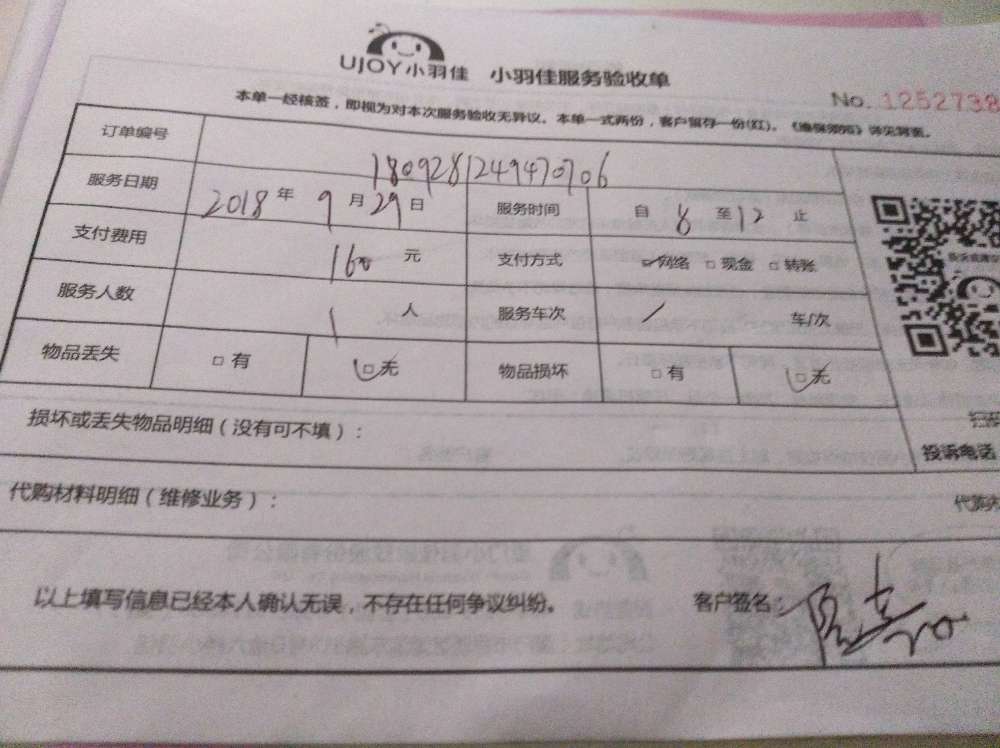 UJOY小羽佳 小羽佳服务验收单
No. 1252738
本单一经核签，即视为对本次服务验收无异议。本单一式两份，客户留存一份(红)。《维保须知》详见背面。
订单编号 1809281249470706
服务日期 2018 年 9 月 29 日 服务时间 自 8 至 12 止
支付费用 160 元 支付方式 ☑网络 □现金 □转账
服务人数 1 人 服务车次 / 车/次
物品丢失 □有 ☑无 物品损坏 □有 ☑无
损坏或丢失物品明细（没有可不填）：
投诉电话
代购材料明细（维修业务）：
以上填写信息已经本人确认无误，不存在任何争议纠纷。 客户签名：